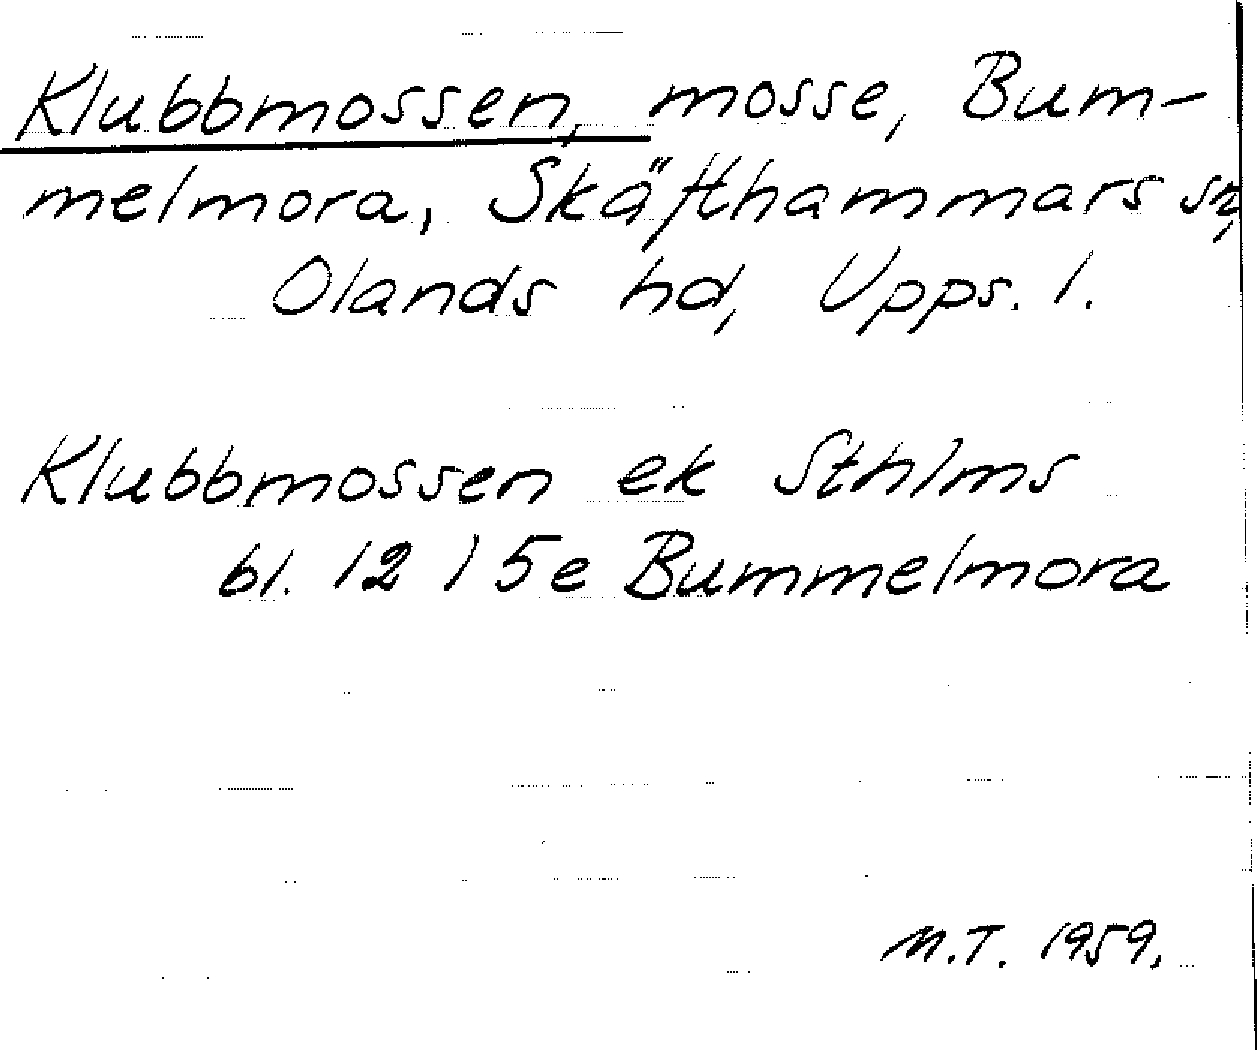 Klubbmossen, mosse, Bum-
melmora, Skäfthammars sn,
Olands hd, Upps. l.
Klubbmossen ek Sthlms
bl. 12 I 5e Bummelmora
M.T. 1959.